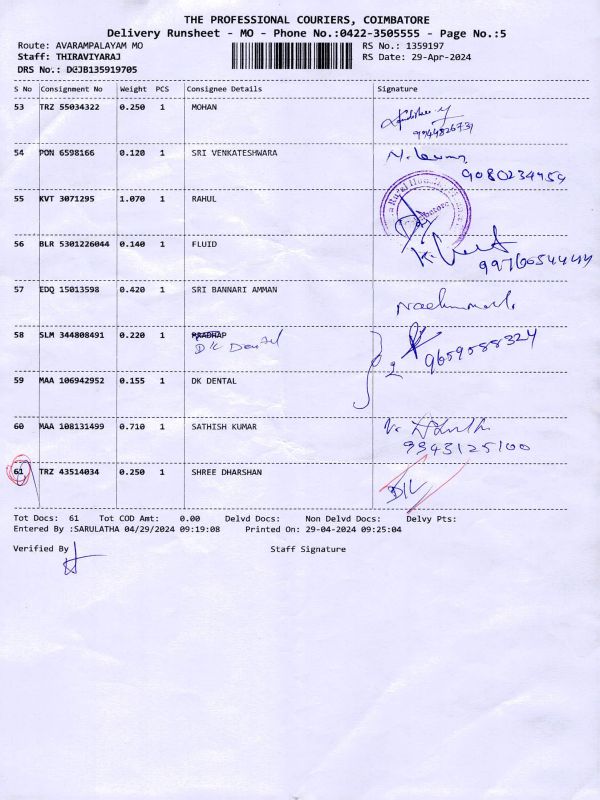 THE PROFESSIONAL COURIERS, COIMBATORE
Delivery Runsheet - MO - Phone No.:0422-3505555 - Page No.:5
Route: AVARAMPALAYAM MO RS No.: 1359197
Staff: THIRAVIYARAJ RS Date: 29-Apr-2024
DRS No.: D@JB135919705
S No Consignment No Weight PCS Consignee Details Signature
53 TRZ 55034322 0.250 1 MOHAN
9944826731
54 PON 6598166 0.120 1 SRI VENKATESHWARA
9080234959
55 KVT 3071295 1.070 1 RAHUL
56 BLR 5301226044 0.140 1 FLUID
9976054444
57 EDQ 15013598 0.420 1 SRI BANNARI AMMAN
58 SLM 344808491 0.220 1 PRADHAP
D/C Dental 9659588324
2
59 MAA 106942952 0.155 1 DK DENTAL
60 MAA 108131499 0.710 1 SATHISH KUMAR
9943125100
61 TRZ 43514034 0.250 1 SHREE DHARSHAN
D/L
Tot Docs: 61 Tot COD Amt: 0.00 Delvd Docs: Non Delvd Docs: Delvy Pts:
Entered By :SARULATHA 04/29/2024 09:19:08 Printed On: 29-04-2024 09:25:04
Verified By Staff Signature